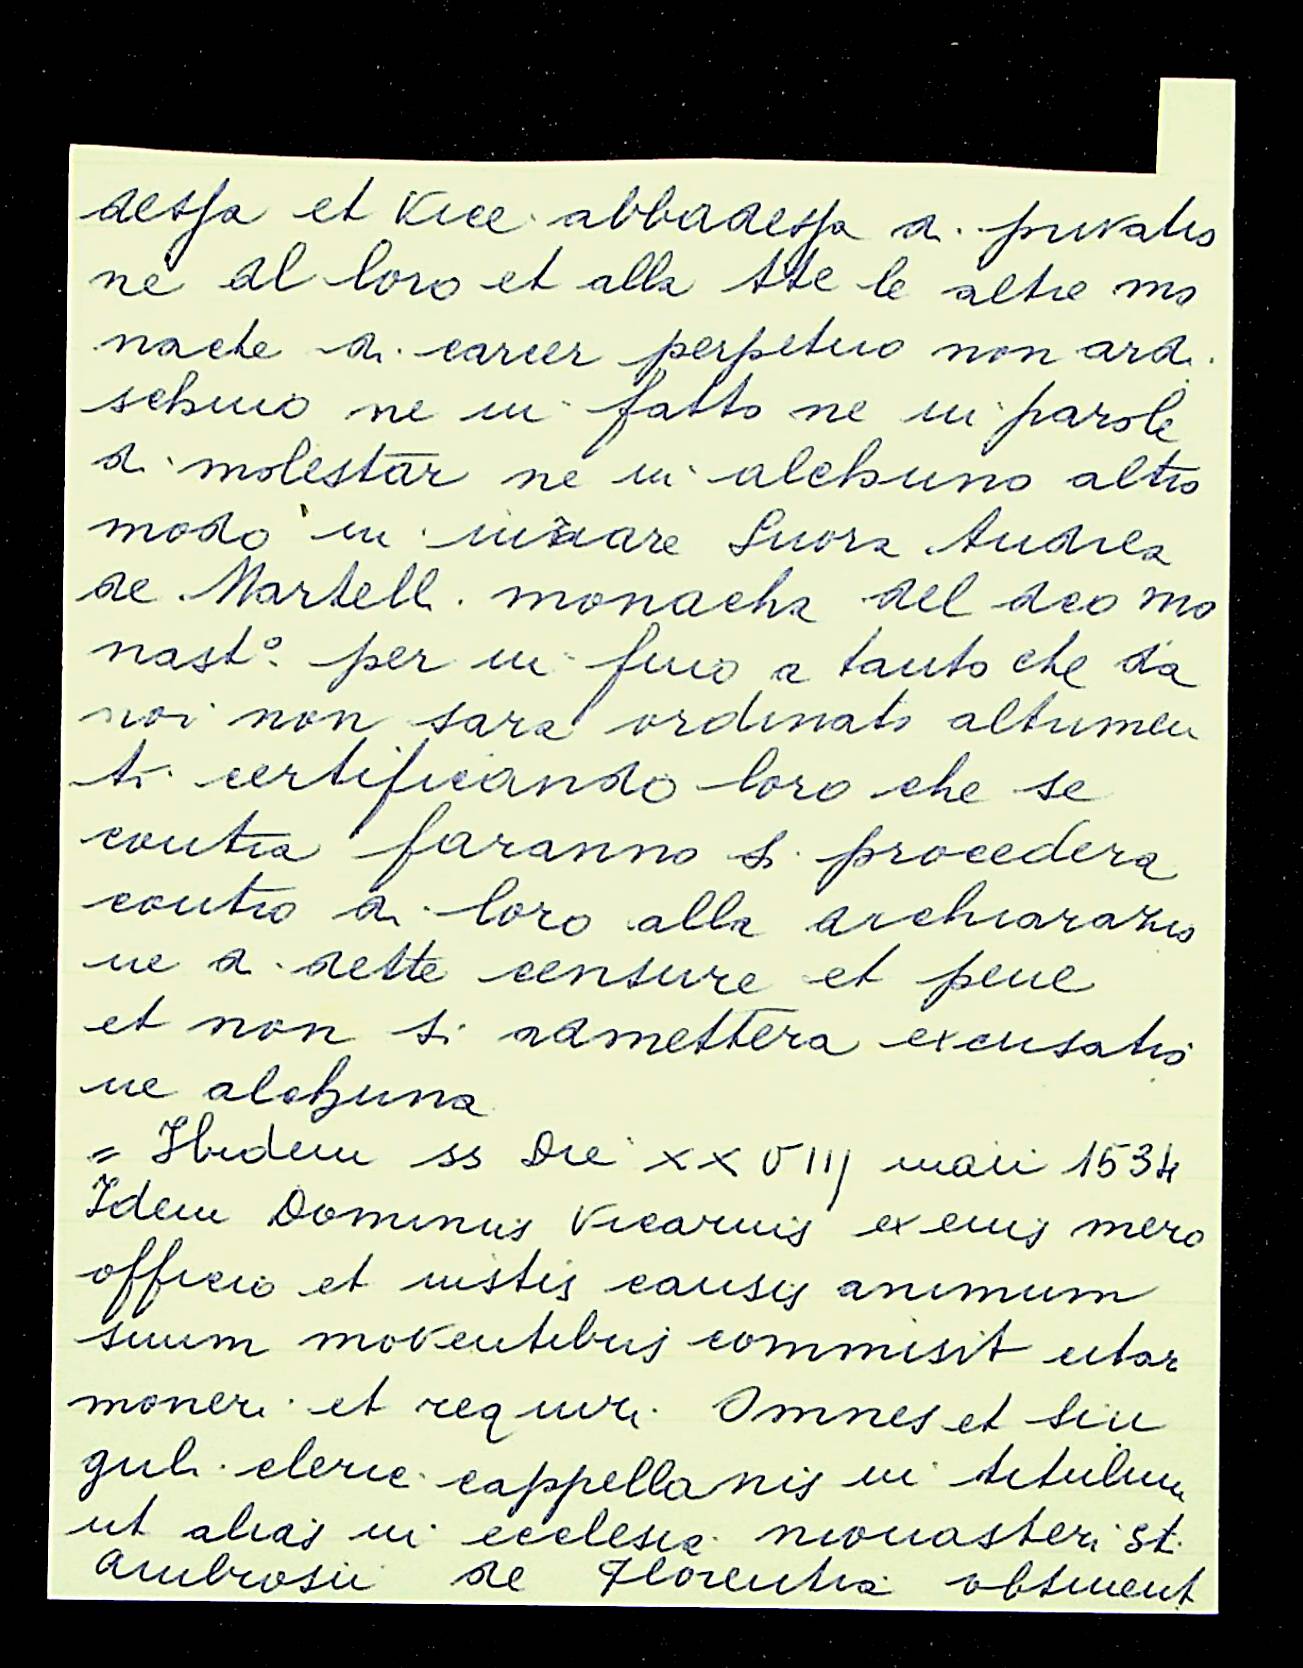 dessa et Vice abbadessa di privatio
ne al loro et alla tte le altre mo
nache di carcer perpetuo non ardi
schino ne in fatto ne in parole
di molestar ne in alchuno altro
modo in Suora Andrea
de Martelli monacha del dco mo
nastº per in fino a tanto che da
noi non sara ordinato altrimen
ti certificando loro che se
contra faranno si procedera
contro di loro alla dichiarazio
ne di dette censure et pene
et non si admettera excusatio
ne alchuna
= Ibidem ss Die XXVIIJ maii 1534
Idem Dominus Vicarius ex eius mero
officio et iustis causis animum
suum moventibus commisit citar
moneri et requiri Omnes et sin
guli cleric cappellanis in titulum
ut alias in ecclesia monasteri St.
Ambrosii de Florentia obtinent